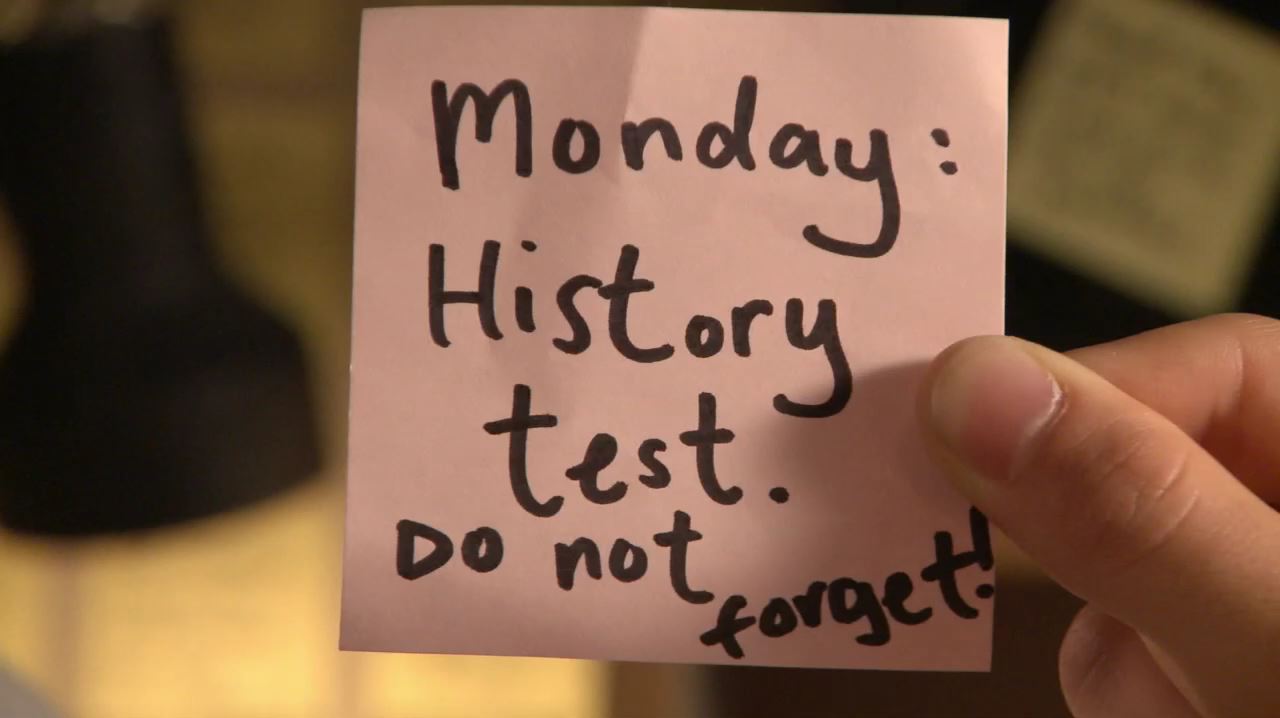 Monday:
History
test.
Do not
forget!